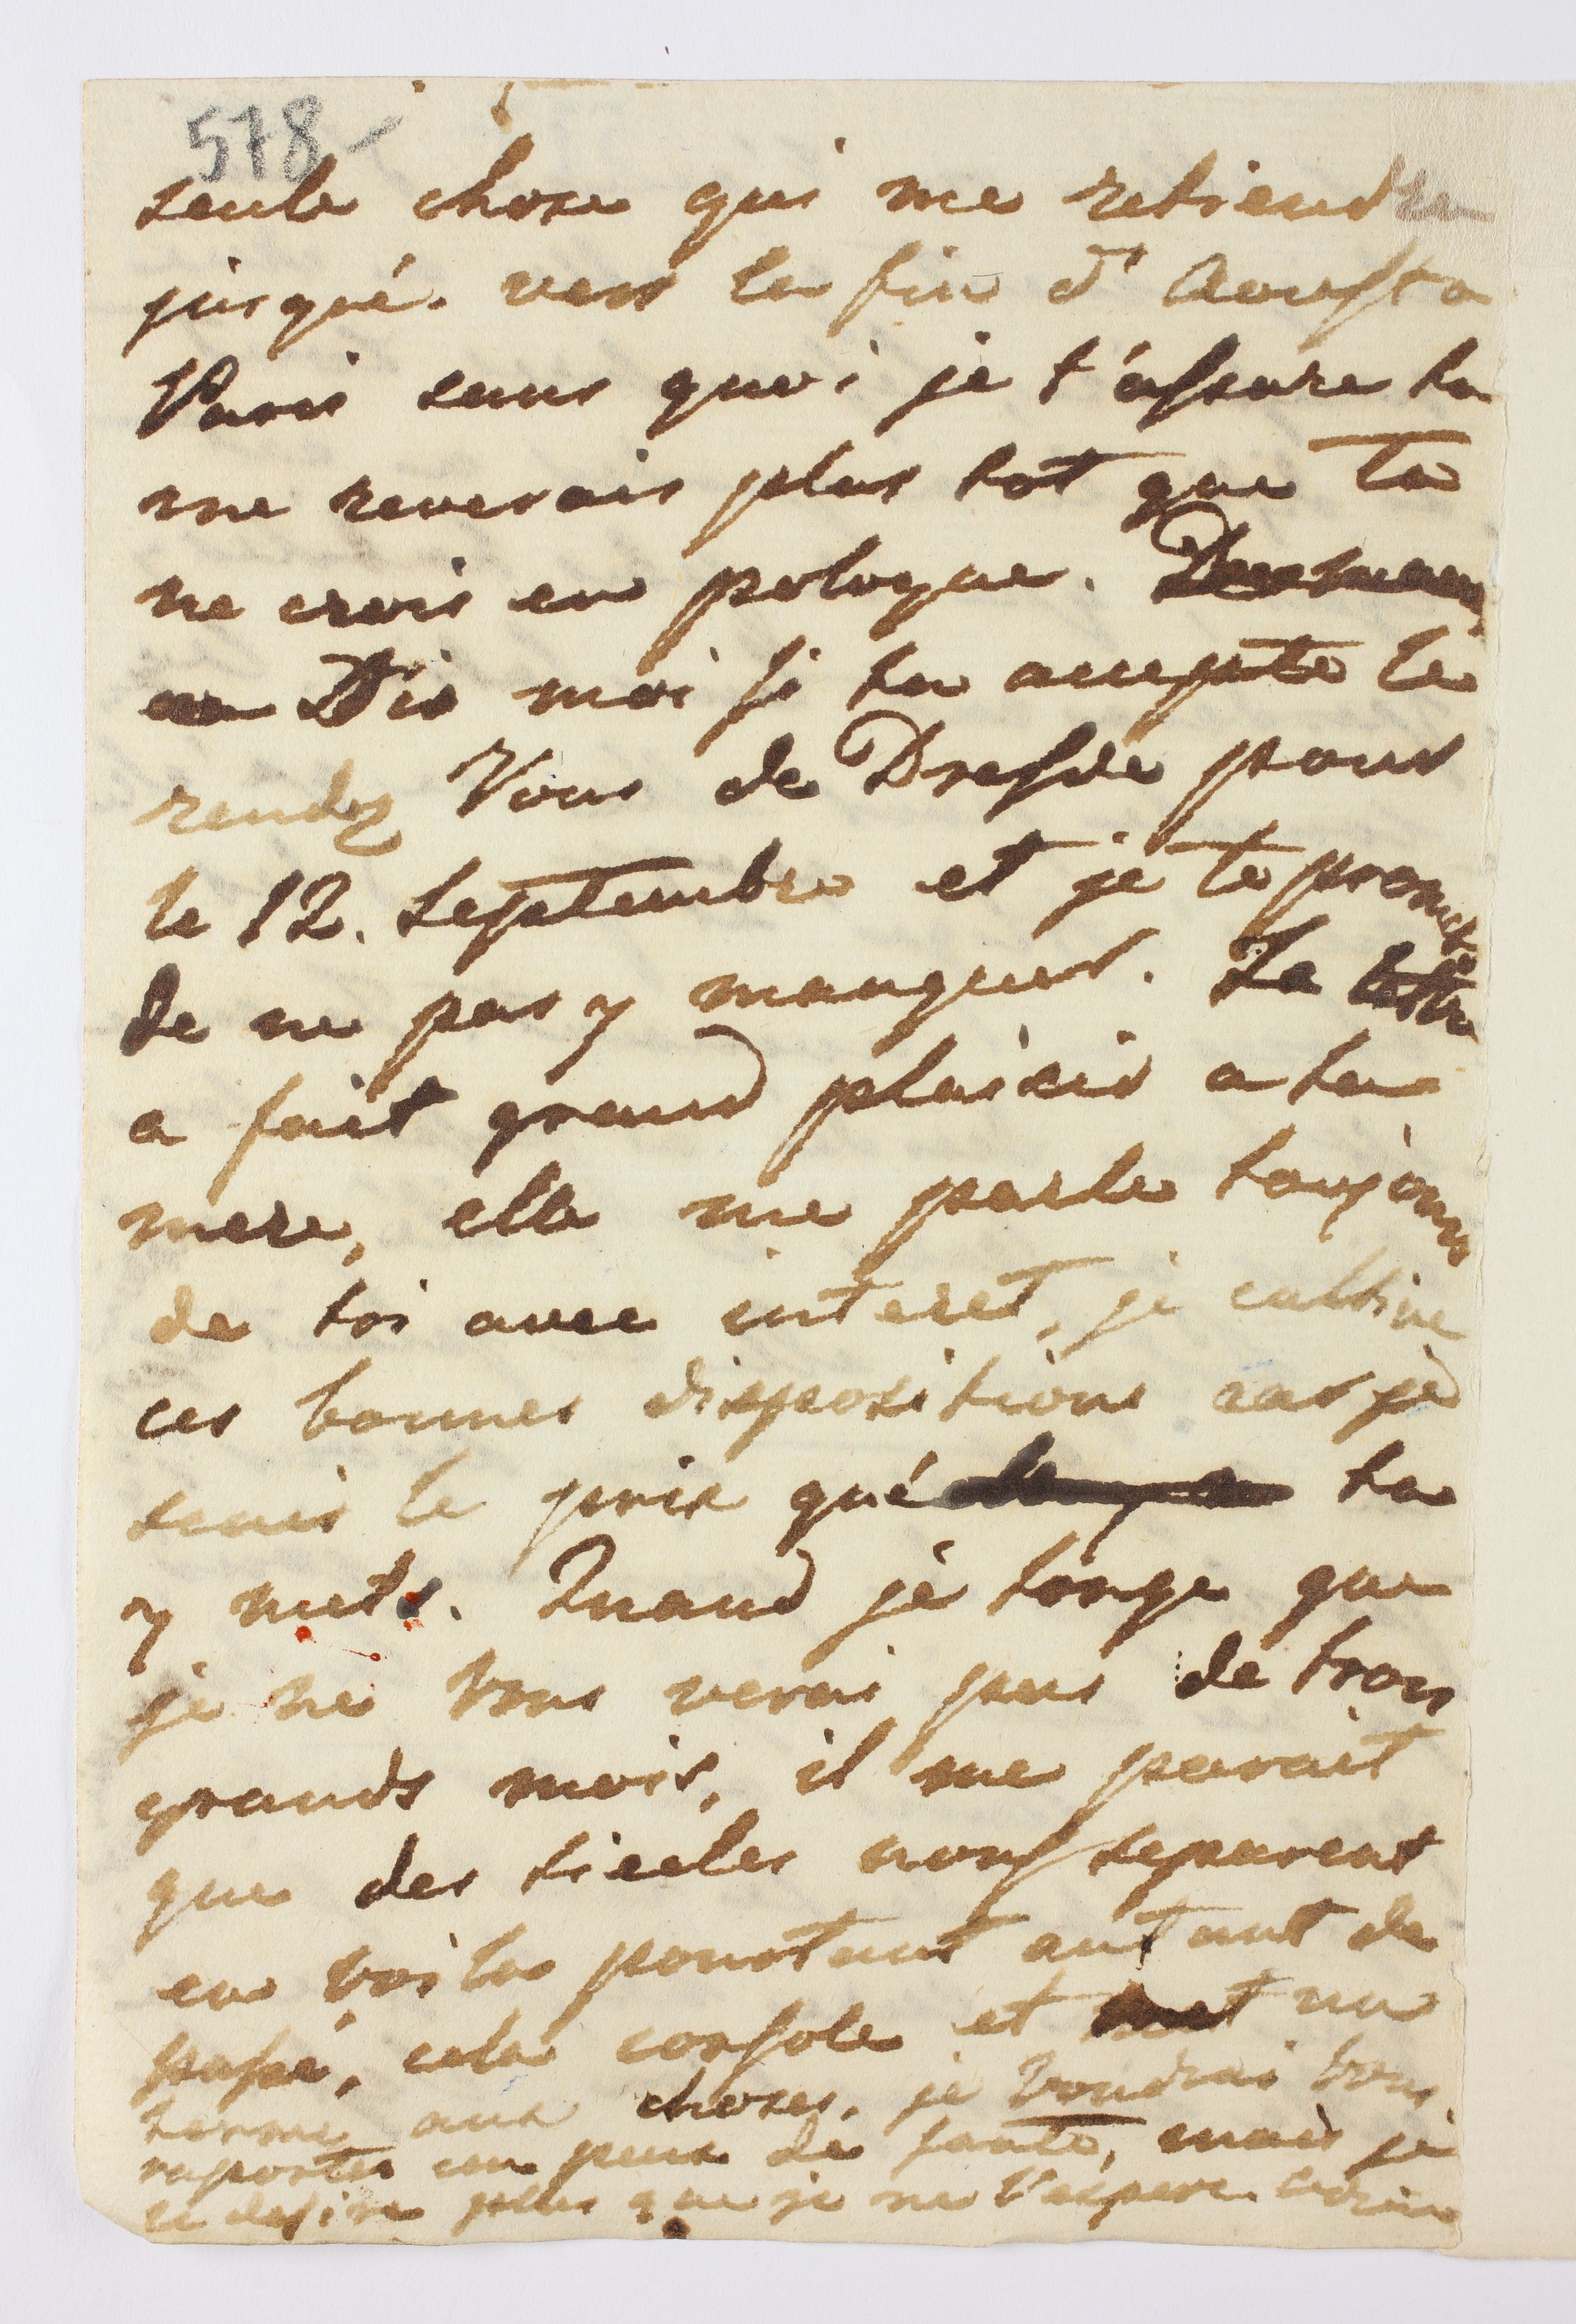 578-
seule chose qui me retiendra
jusqué. vers la fin d'Aoust a
Paris sans quoi je t'assure tu
me reverais plus tot que tu
ne crois en pologne.
Dis moi si tu accepte le
rendez Vous de Dresde pour
le 12. Septembre et je te promet
de ne pas y manquer. Ta lettre
a fait grand plaisir a ta
mere, elle me parle toujours
de toi avec interet, je cultive
ces bonnes dispositions car je
sais le prix qué tu
y mets. Quand je songe que
je ne Vous verai pas de trois
grands mois, il me parait
que des siecles nous separent
en voila pourtant autant de
passé, cela console et met un
terme aux choses, je voudrai Vous
raporter un peux de santé, mais je
le desire plus que je ne l'espere.